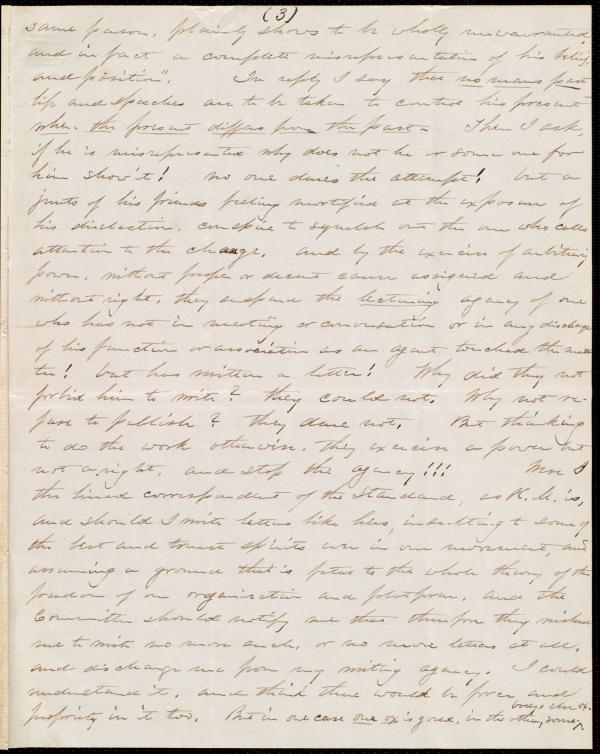 (3)
same person, plainly shows to be wholly unwarranted
and in fact a complete misrepresentation of his belief
and position". In reply I say that no mans past
life and speeches are to be taken to control his present
when the present differs from the past - Then I ask,
if he is misrepresented why does not he or some one for
him show it! no one dares the attempt! but a
junto of his friends feeling mortified at the exposure of
his disclection, conspire to squelch out the one who calls
attention to the change, and by the exercise of arbitrary
power, without proper or decent cause assigned and
without right, they suspend the lecturing agency of one
who has not in meeting or conversation or in any discharge
of his function or association as an agent touched the mat
ter! but has written a letter! Why did they not
forbid him to write? they could not. Why not re-
fuse to publish? they dare not. But thinking
to do the work otherwise, they exercise a power but
not a right, and stop the agency!!! Were I
the hired correspondent of the Standard, as R. M. is,
and should I write letters like his, insulting to some of
the best and truest spirits ever in our movement, and
assuming a ground that is fatal to the whole theory of the
freedom of our organization and platform, and the
Committee should notify me that therefore they wished
me to write no more such, or no more letters at all,
and discharge me from my writing agency. I could
understand it, and think there would be force and
propriety in it too. But in one case our ox is gored, in the other, some
body else ox